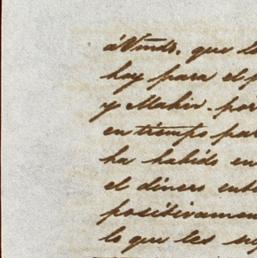 á Vmds. que l
hay para el p
y Mahin. por
en tiempo par
ha habido en
el dinero ent
positivamen
lo que les su